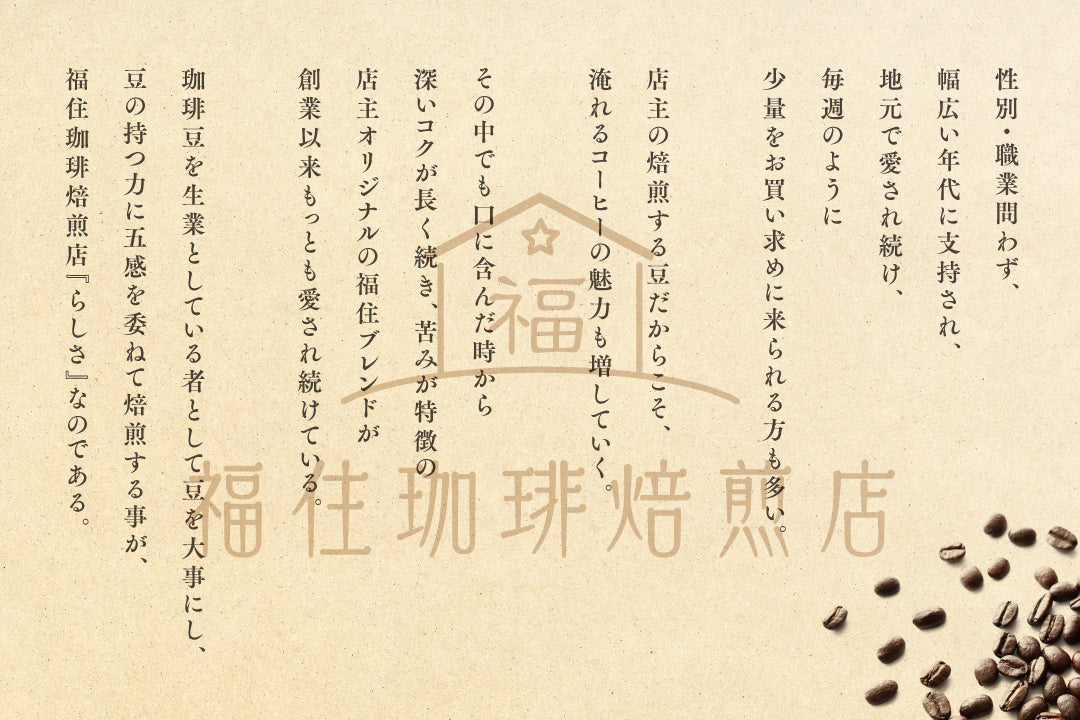 性別・職業問わず、
幅広い年代に支持され、
地元で愛され続け、
毎週のように
少量をお買い求めに来られる方も多い。
店主の焙煎する豆だからこそ、
淹れるコーヒーの魅力も増していく。
その中でも口に含んだ時から
深いコクが長く続き、苦みが特徴の
店主オリジナルの福住ブレンドが
創業以来もっとも愛され続けている。
珈琲豆を生業としている者として豆を大事にし、
豆の持つ力に五感を委ねて焙煎する事が、
福住珈琲焙煎店『らしさ』なのである。
福
福住珈琲焙煎店